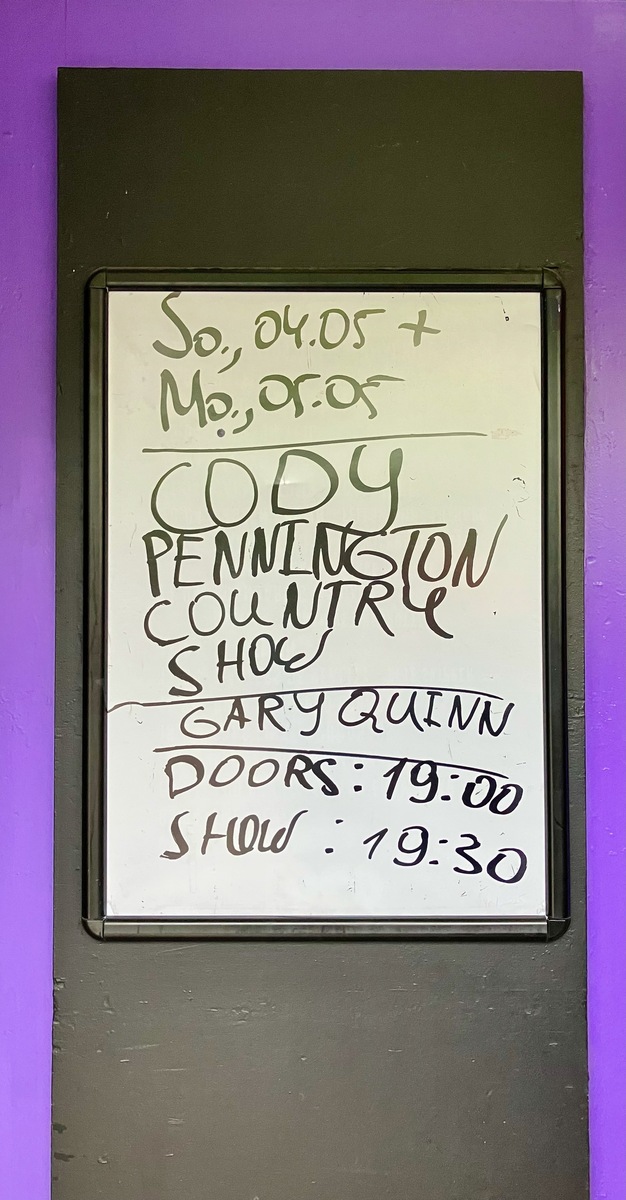 So., 04.05 +
Mo., 05.05
CODY
PENNINGTON
COUNTRY
SHOW
GARY QUINN
DOORS: 19:00
SHOW : 19:30